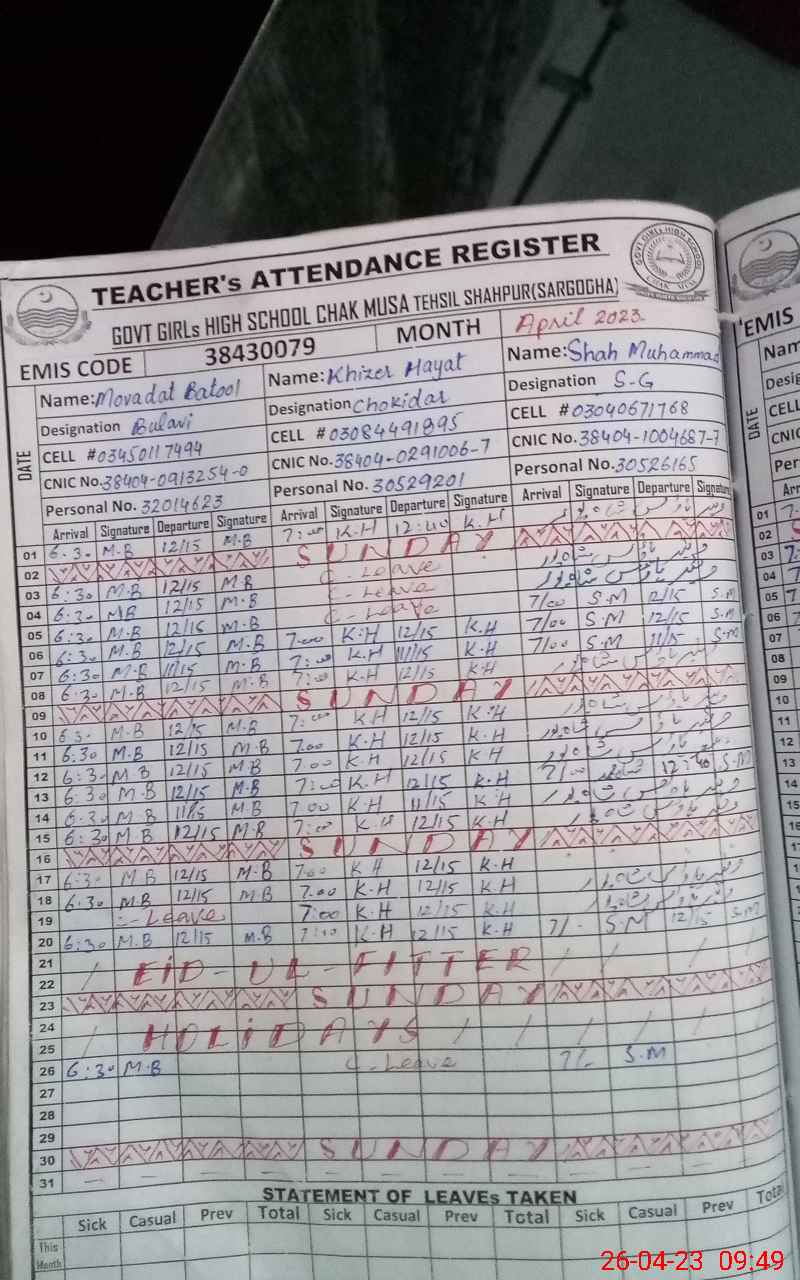 TEACHER's ATTENDANCE REGISTER
GOVT GIRLs HIGH SCHOOL CHAK MUSA TEHSIL SHAHPUR(SARGOGHA)
GOVT GIRLs HIGH SCHOOL CHAK MUSA
EMIS CODE 38430079 MONTH April 2023
DATE
Name: Movadat Batool Name: Khizer Hayat Name: Shah Muhammad
Designation Bulavi Designation Chokidar Designation S-G
CELL #03450117494 CELL #03084491895 CELL #03040671768
CNIC No. 38404-0913254-0 CNIC No. 38404-0291006-7 CNIC No. 38404-1004687-7
Personal No. 32014623 Personal No. 30529201 Personal No. 30526165
Arrival Signature Departure Signature Arrival Signature Departure Signature Arrival Signature Departure Signature
01 6:30 M.B 12/15 M.B 7:00 K.H 12:40 K.H
02 SUNDAY
03 6:30 M.B 12/15 M.B C-Leave
04 6:30 MB 12/15 M.B C-Leave
05 6:30 M.B 12/15 M.B C-Leave 7/00 S.M 12/15 S.M
06 6:30 M.B 12/15 M.B 7:00 K.H 12/15 K.H 7/00 S.M 12/15 S.M
07 6:30 M.B 11/15 M.B 7:00 K.H 11/15 K.H 7/00 S.M 11/15 S.M
08 6:30 M.B 12/15 M.B 7:00 K.H 12/15 K.H
09 SUNDAY
10 6:30 M.B 12/15 M.B 7:00 K.H 12/15 K.H
11 6:30 M.B 12/15 M.B 7:00 K.H 12/15 K.H
12 6:30 M.B 12/15 M.B 7:00 K.H 12/15 K.H
13 6:30 M.B 12/15 M.B 7:00 K.H 12/15 K.H 7/00 12:40 S.M
14 6:30 M.B 11/15 M.B 7:00 K.H 11/15 K.H
15 6:30 M.B 12/15 M.B 7:00 K.H 12/15 K.H
16 SUNDAY
17 6:30 M.B 12/15 M.B 7:00 K.H 12/15 K.H
18 6:30 M.B 12/15 M.B 7:00 K.H 12/15 K.H
19 C-Leave 7:00 K.H 12/15 K.H
20 6:30 M.B 12/15 M.B 7:00 K.H 12/15 K.H 7/- S.M 12/15 S.M
21
22 EID-UL-FITTER
23 SUNDAY
24
25 HOLIDAYS
26 6:30 M.B C-Leave 7/- S.M
27
28
29
30 SUNDAY
31
STATEMENT OF LEAVEs TAKEN
Sick Casual Prev Total Sick Casual Prev Total Sick Casual Prev Total
This Month
26-04-23 09:49